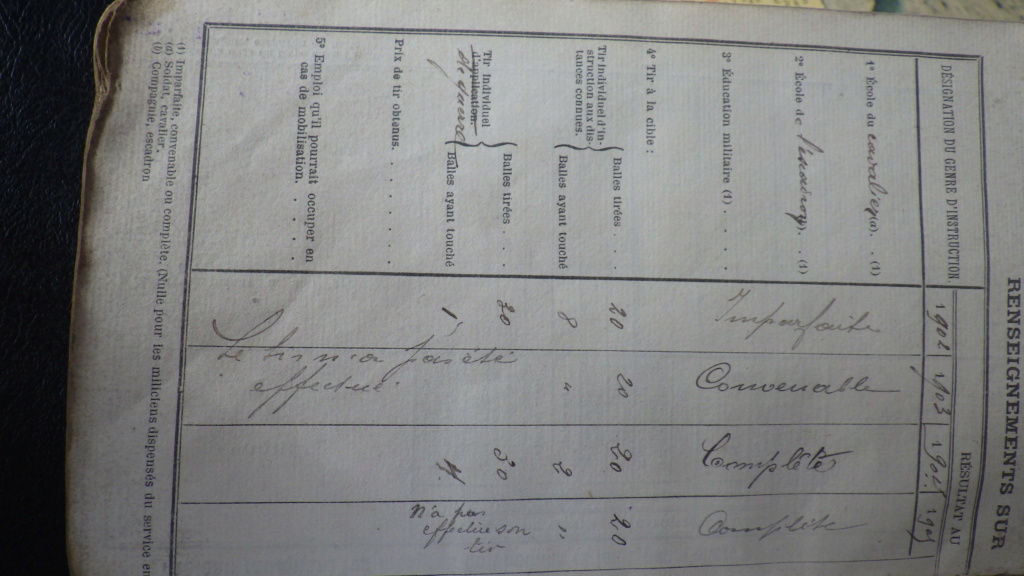 RENSEIGNEMENTS SUR
DÉSIGNATION DU GENRE D'INSTRUCTION.
RÉSULTAT AU
1902 1903 1904 1905
1° École du cavalier (a). . (1)
2° École de l'escadron (b). . (1)
3° Éducation militaire (1) . . . .
Imparfaite
Convenable
Complète
Complète
4° Tir à la cible :
Tir individuel d'in-
struction aux dis-
tances connues.
Balles tirées . . .
20 20 20 20
Balles ayant touché
8 " 2 "
Tir individuel
d'application.
de guerre
Balles tirées . . .
20 30
Balles ayant touché
1 4
Le tir n'a pas été
effectué.
n'a pas
effectué son
tir
Prix de tir obtenus. . . . . . .
5° Emploi qu'il pourrait occuper en
cas de mobilisation. . . . .
(1) Imparfaite, convenable ou complète. (Nulle pour les miliciens dispensés du service en
(a) Soldat, cavalier.
(b) Compagnie, escadron